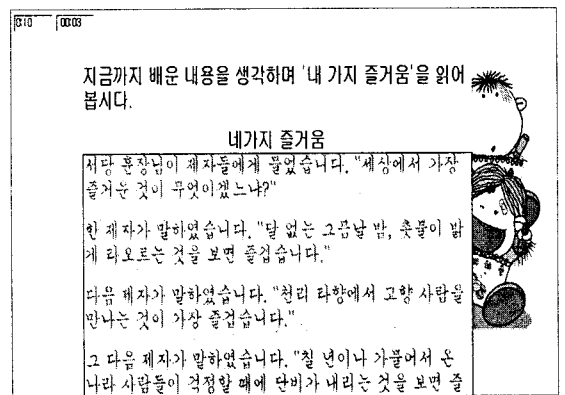 0:10 00:03
지금까지 배운 내용을 생각하며 '내 가지 즐거움'을 읽어
봅시다.
네가지 즐거움
서당 훈장님이 제자들에게 물었습니다. "세상에서 가장
즐거운 것이 무엇이겠느냐?"
한 제자가 말하였습니다. "달 없는 그믐날 밤, 촛불이 밝
게 타오르는 것을 보면 즐겁습니다."
다음 제자가 말하였습니다. "천리 타향에서 고향 사람을
만나는 것이 가장 즐겁습니다."
그 다음 제자가 말하였습니다. "칠 년이나 가물어서 온
나라 사람들이 걱정할 때에 단비가 내리는 것을 보면 즐